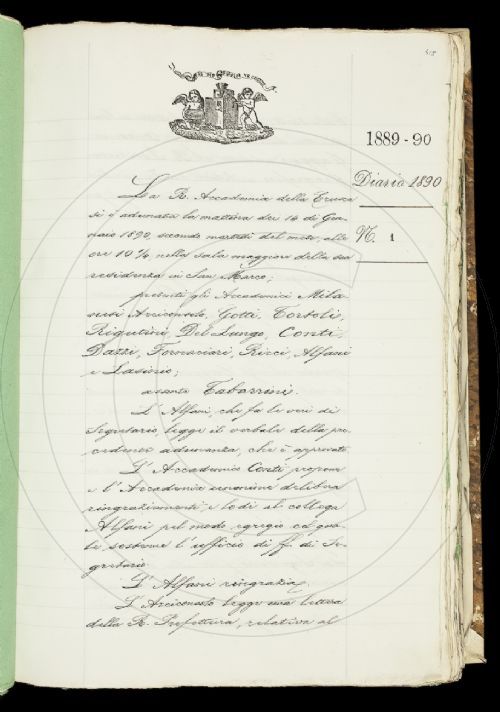 1889-90
Diario 1890
N. 1
La R. Accademia della Crusca
si è adunata la mattina dei 14 di Gen-
naio 1890, secondo martedì del mese, alle
ore 10 ¼ nella sala maggiore della sua
residenza in San Marco;
presenti gli Accademici Mila-
nesi Arciconsolo, Gotti, Tortoli,
Rigutini, Del Lungo, Conti,
Dazzi, Fornaciari, Ricci, Alfani
e Lasinio;
assente Tabarrini.
L'Alfani, che fa le veci di
Segretario, legge il verbale della pre-
cedente adunanza, che è approvato.
L'Accademico Conti propone
e l'Accademia unanime delibera
ringraziamenti e lodi al collega
Alfani pel modo egregio col qua-
le sostenne l'ufficio di ff. di Se-
gretario.
L'Alfani ringrazia.
L'Arciconsolo legge una lettera
della R. Prefettura, relativa al